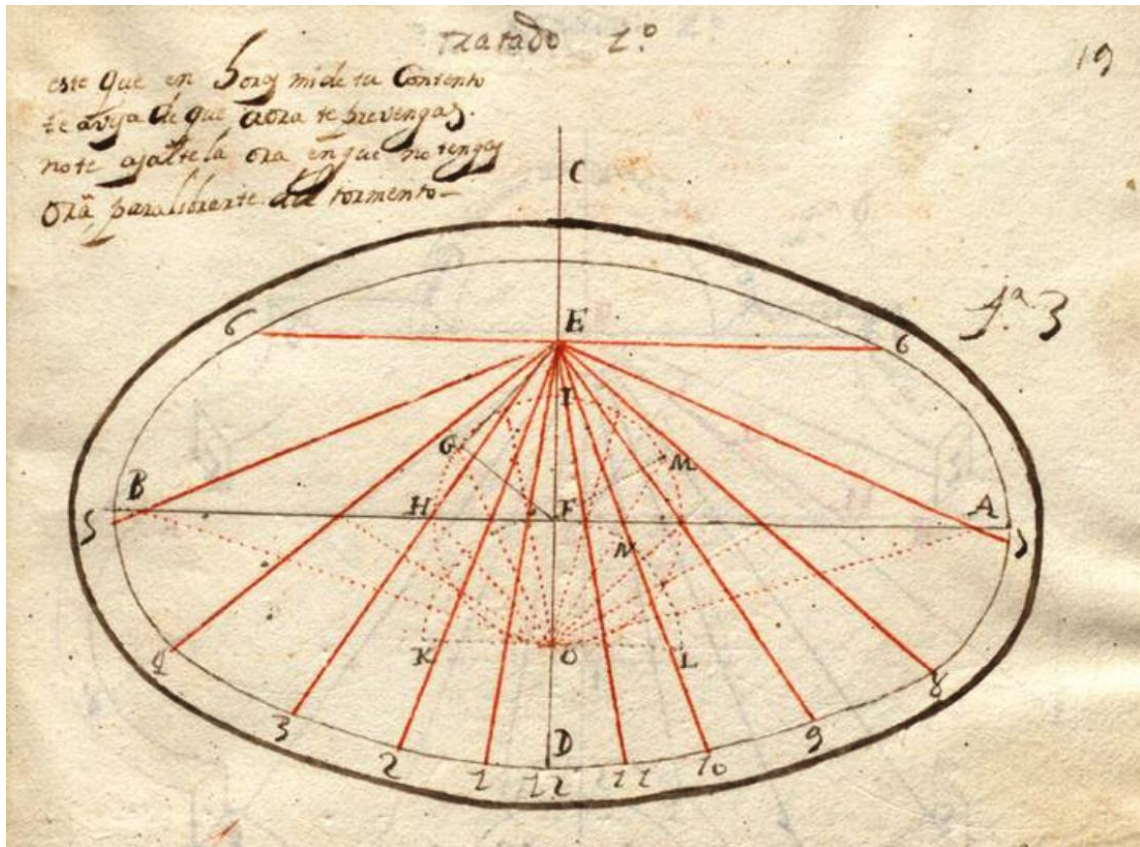 tratado 1º
19
este que en horas mide tu Contento
te avisa de que aora te prevengas.
no te asalte la ora en que no tengas
Ora para librarte del tormento
C
fª 3
E
6
6
I
G
M
B
H
F
A
5
N
K
O
L
4
8
3
9
D
2
1
12
11
10